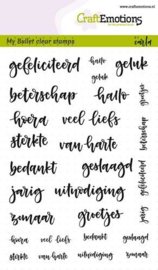 www.craftemotions.nl
CraftEmotions
My Bullet clear stamps
carla
gefeliciteerd hallo geluk
geluk
beterschap hallo
groetjes
hoera veel liefs
beterschap
sterkte van harte
bedankt geslaagd
gefeliciteerd
jarig uitnodiging
jarig
zomaar groetjes
hoera veel liefs bedankt geslaagd
sterkte van harte uitnodiging zomaar